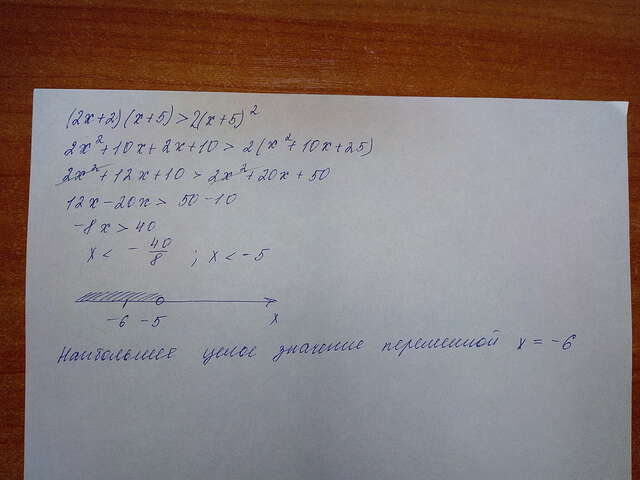 (2x+2)(x+5)>2(x+5)²
2x²+10x+2x+10>2(x²+10x+25)
2x²+12x+10>2x²+20x+50
12x-20x>50-10
-8x>40
x<-40/8 ; x<-5
-6 -5 x
Наибольшее целое значение переменной x=-6